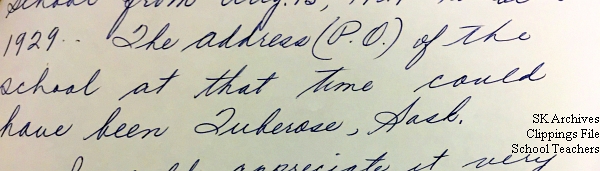 school from Aug. 15, 1929
1929.. The address (P.O.) of the
school at that time could
have been Tuberose, Sask.
appreciate it very
SK Archives
Clippings File
School Teachers